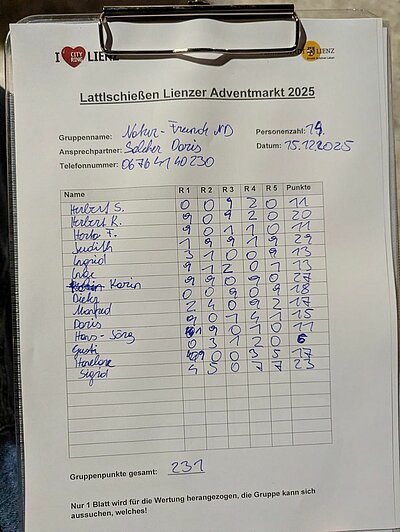 I CITY RING LIENZ
LIENZ
Lattlschießen Lienzer Adventmarkt 2025
Gruppenname: Natur-Freunde ND Personenzahl: 14
Ansprechpartner: Solcher Doris Datum: 15.12.2025
Telefonnummer: 0676 41 40 230
Name R 1 R 2 R 3 R 4 R 5 Punkte
Herbert S. 0 0 9 2 0 11
Herbert K. 9 0 9 2 0 20
Horta F. 9 0 1 1 0 11
Judith 1 9 9 1 9 29
Ingrid 3 1 0 0 9 13
Inge 9 1 2 0 1 13
Karin 9 9 0 9 0 27
0 0 9 0 9 18
Manfred 2 4 0 9 2 17
Doris 9 0 1 4 1 15
Hans-Jörg 1 9 0 1 0 11
Gusti 0 3 1 2 0 6
Hannelore 9 0 0 3 5 17
Sigrid 4 5 0 7 7 23
Gruppenpunkte gesamt: 231
Nur 1 Blatt wird für die Wertung herangezogen, die Gruppe kann sich
aussuchen, welches!